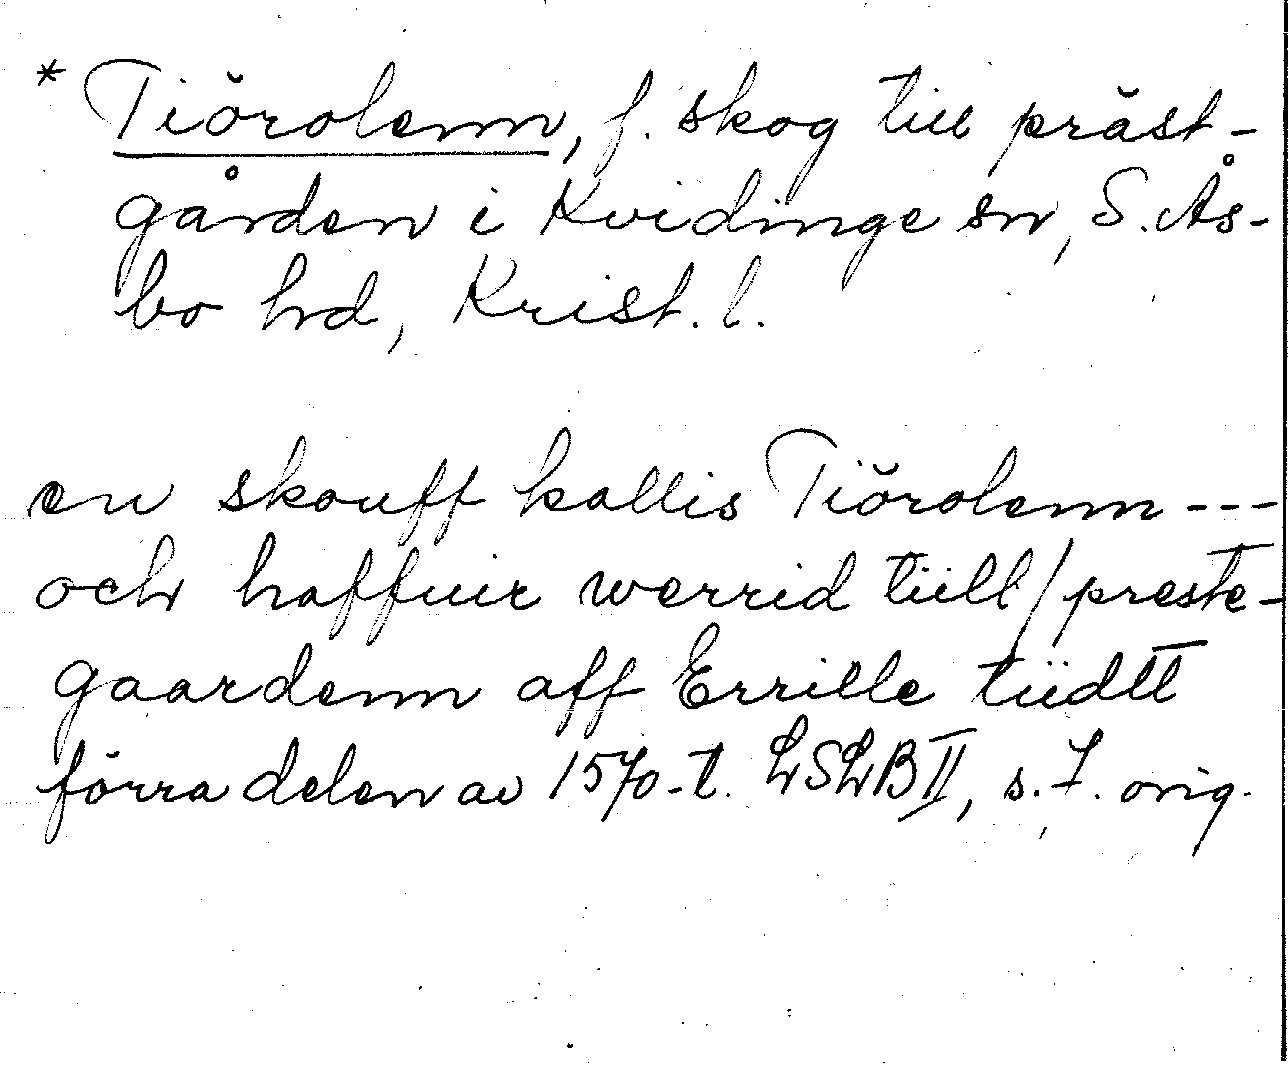 * Tiörolenn, f. skog till präst-
gården i Kvidinge sn, S. Ås-
bo hd, Krist. l.
en skouff kallis Tiörolenn ---
och haffuir werrid tiill/preste-
gaardenn aff Errille tiidtt
förra delen av 1570-t. LSLB II, s. 7. orig.